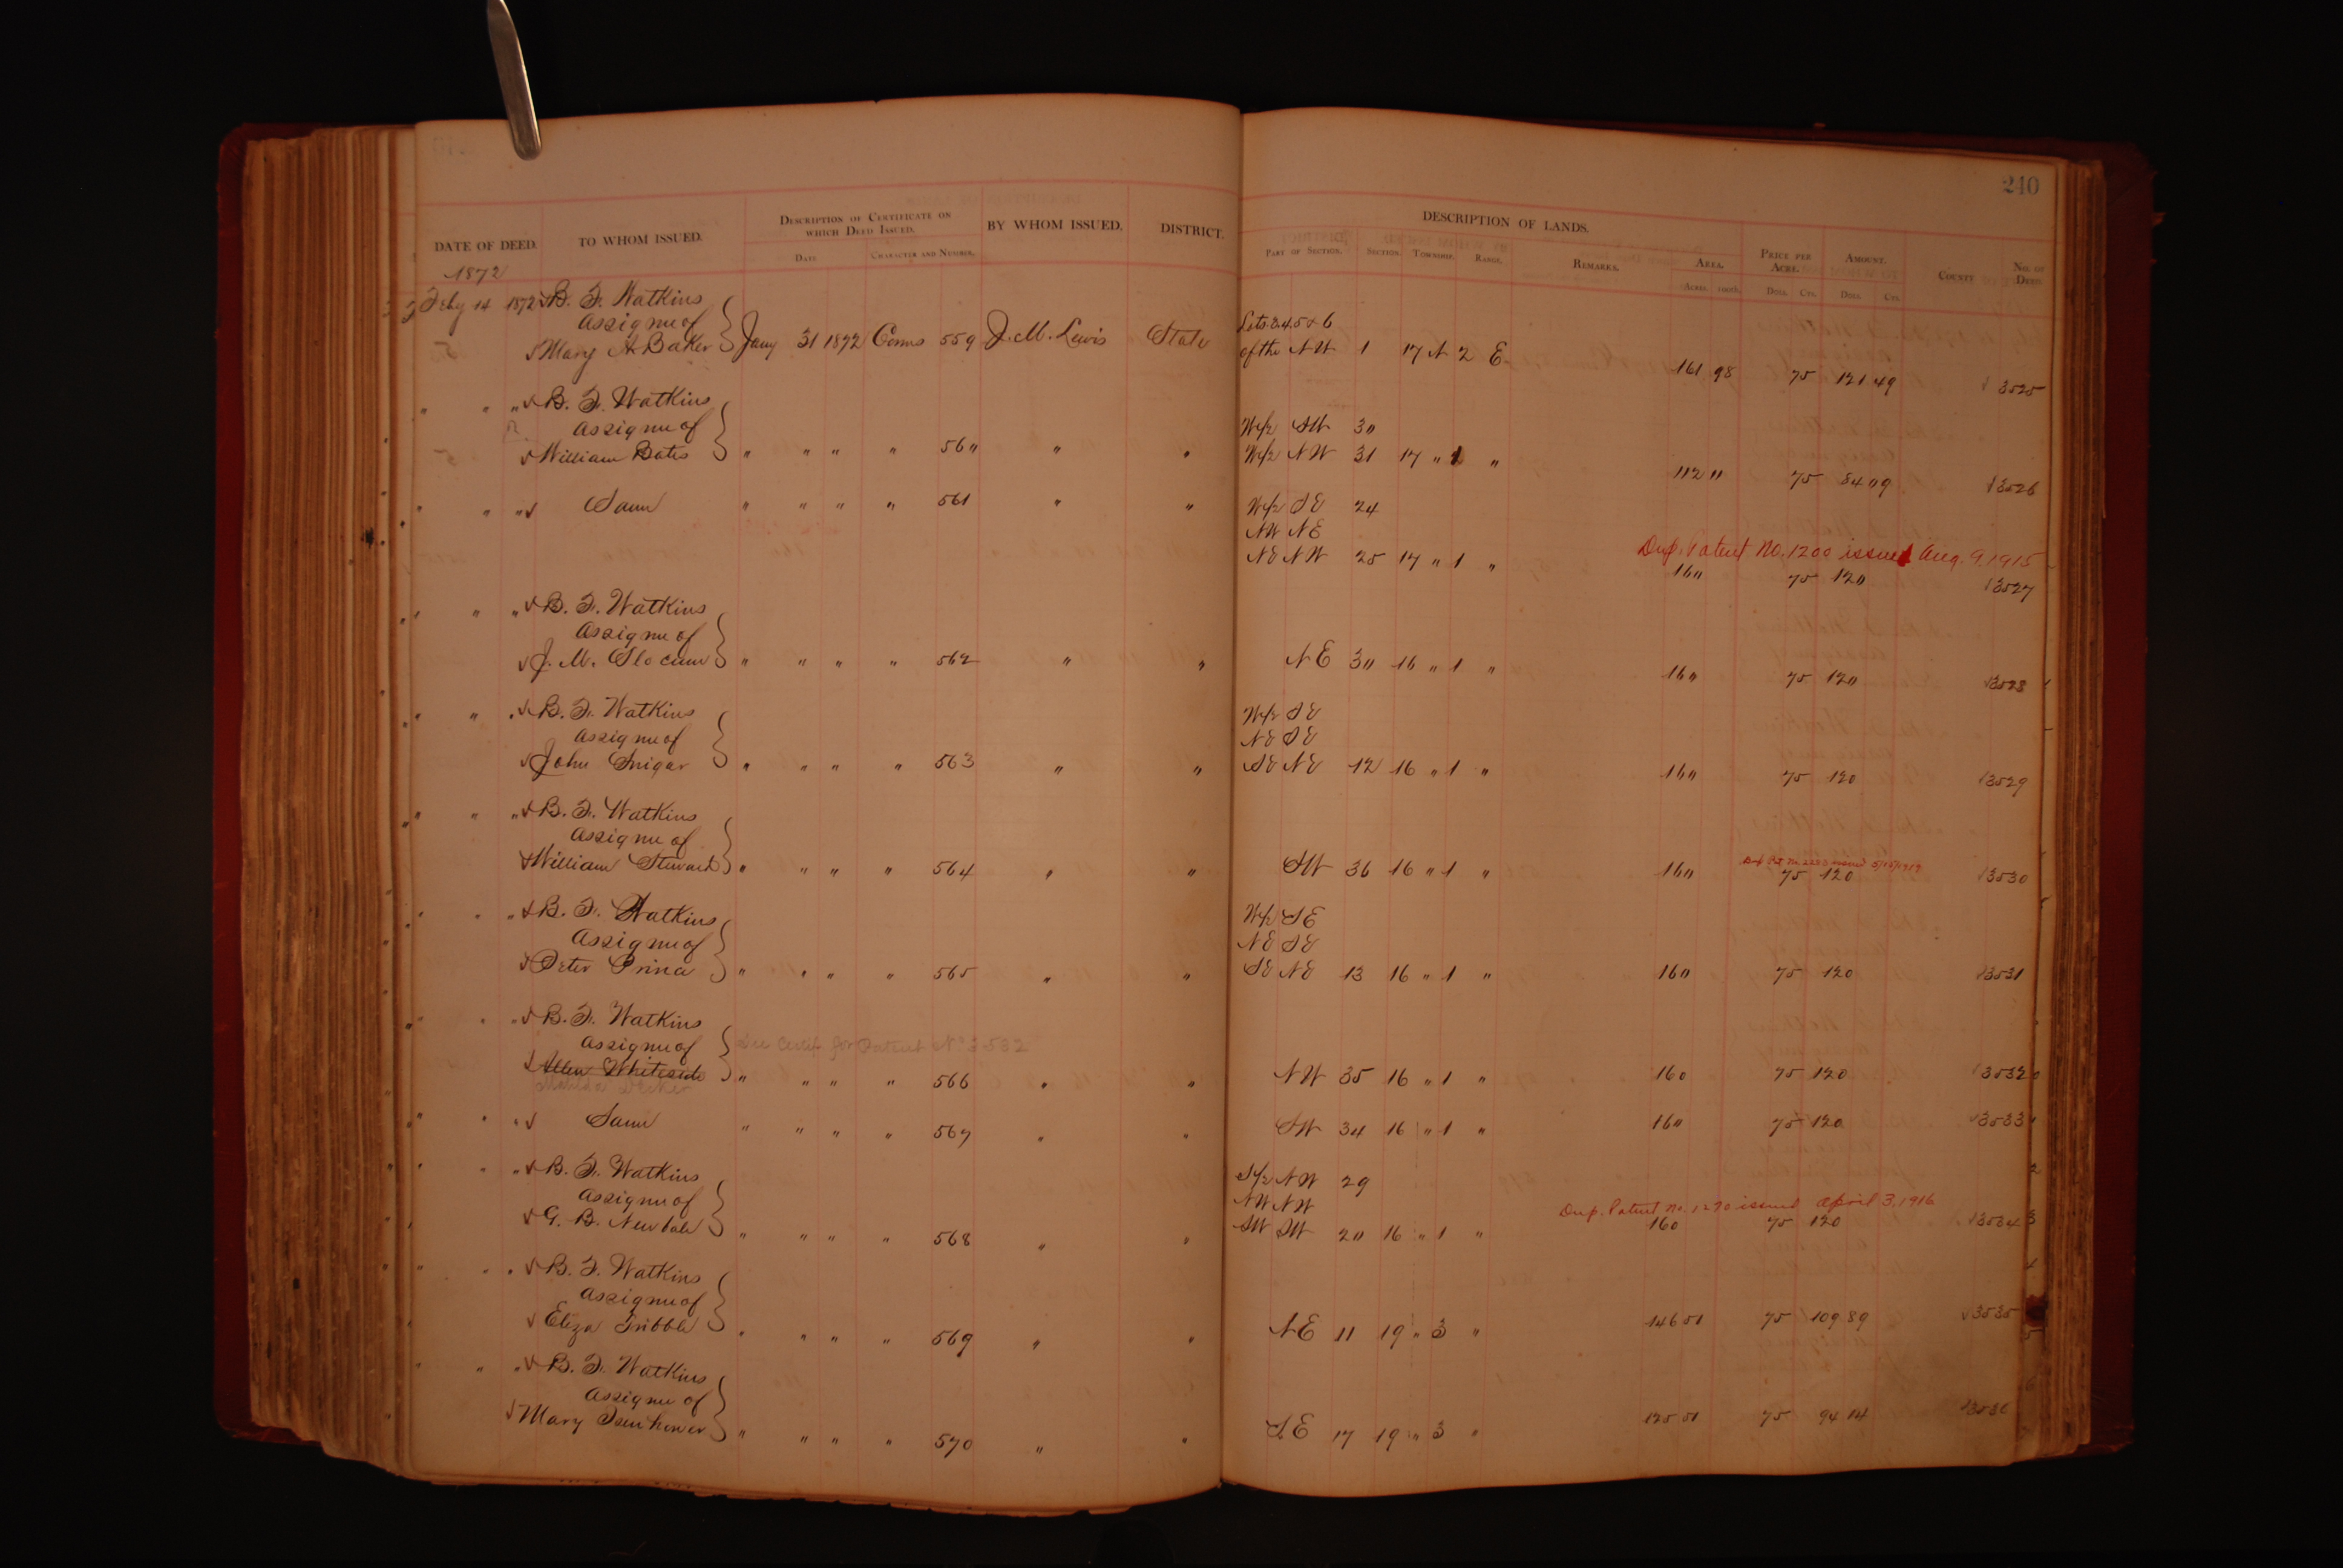 240
DATE OF DEED. TO WHOM ISSUED. DESCRIPTION OF CERTIFICATE ON WHICH DEED ISSUED. BY WHOM ISSUED. DISTRICT. DESCRIPTION OF LANDS.
DATE CHARACTER AND NUMBER. PART OF SECTION. SECTION. TOWNSHIP. RANGE. REMARKS. AREA. PRICE PER ACRE. AMOUNT. COUNTY No. OF DEED
ACRES. 100ths. DOLLS. CTS. DOLLS. CTS.
1872
Feby 14 1872 B. F. Watkins
Assignee of Lots 3, 4, 5 & 6
Mary A Baker } Jany 31 1872 Coms 559 J. M. Lewis State of the NW 1 17 N 2 E 161 98 75 121 49 3525
" " " B. F. Watkins
Assignee of W/2 SW 30
William Bates } " " " " 56" " " W/2 NW 31 17 " 1 " 112 " 75 84 "9 3526
" " " Same " " " " 561 " " W/2 SE 24
NW NE
NE NW 25 17 " 1 " Dup. Patent No. 1200 issued Aug. 9, 1915
16" 75 120 3527
" " " B. F. Watkins
Assignee of
J. M. Slocum } " " " " 562 " " NE 3" 16 " 1 " 16" 75 12" 3528
" " " B. F. Watkins W/2 SE
Assignee of NE SE
John } " " " " 563 " " SE NE 12 16 " 1 " 16" 75 120 3529
" " " B. F. Watkins
Assignee of
William Stewart } " " " " 564 " " SW 36 16 " 1 " 16" 75 120 3530
" " " B. F. Watkins W/2 SE
Assignee of NE SE
Peter Prince } " " " " 565 " " SE NE 13 16 " 1 " 16" 75 120 3531
" " " B. F. Watkins
Assignee of See Certif for Patent No 3532
Allen Whiteside } " " " " 566 " " NW 35 16 " 1 " 160 75 120 3532
" " " Same " " " " 567 " " SW 34 16 " 1 " 16" 75 120 3533
" " " B. F. Watkins S/2 NW 29
Assignee of NW NW Dup. Patent No. 1270 issued April 3, 1916
G. B. } " " " " 568 " " SW SW 2" 16 " 1 " 160 75 120 3534
" " " B. F. Watkins
Assignee of
Eliza Tribble } " " " " 569 " " NE 11 19 " 3 " 146 51 75 109 89 3535
" " " B. F. Watkins
Assignee of
Mary Isenhower } " " " " 570 " " SE 17 19 " 3 " 125 51 75 94 14 3536